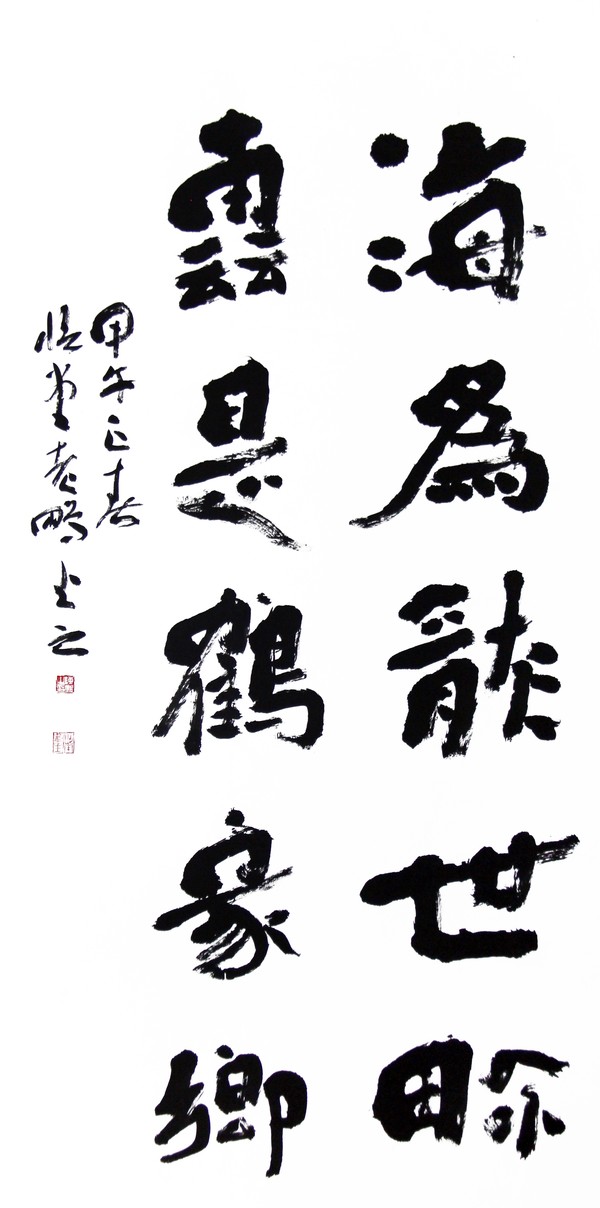 海為龍世畍
雲是鶴家鄉
甲午正春
堂老書之